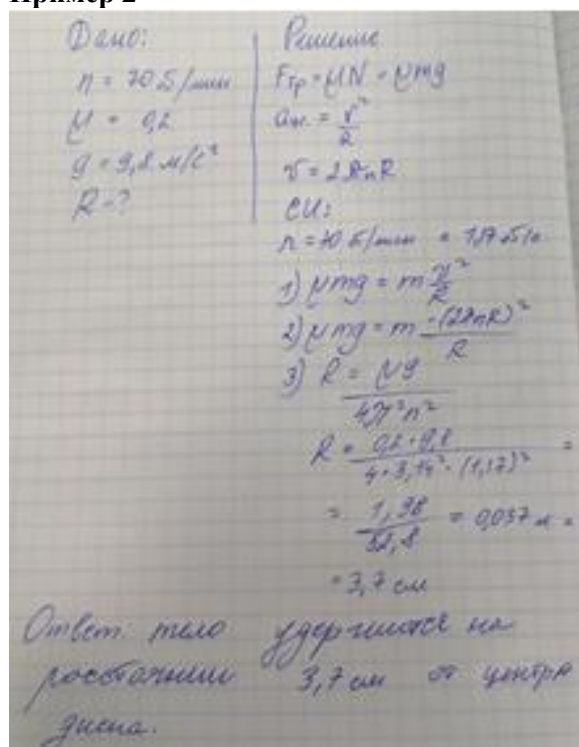 Пример 2
Дано:
n = 70 об/мин
μ = 0,2
g = 9,8 м/с²
R - ?
Решение
Fтр = μN = μmg
aцс. = v²/R
v = 2πnR
СИ:
n = 70 об/мин = 1,17 об/с
1) μmg = m v²/R
2) μmg = m · (2πnR)²/R
3) R = μg/4π²n²
R = 0,2 · 9,8/4 · 3,14² · (1,17)² =
= 1,98/52,8 = 0,037 м =
= 3,7 см
Ответ: тело удержится на
расстоянии 3,7 см от центра
диска.